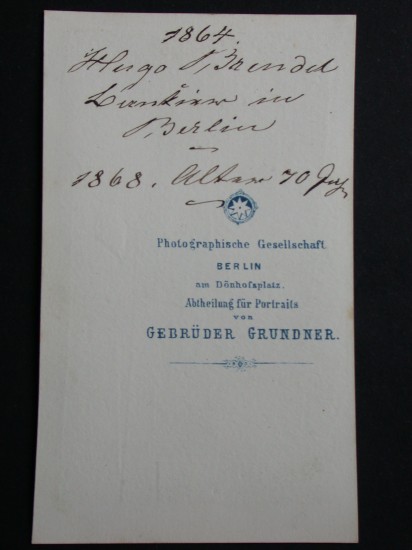 1864.
Hugo Brendel
Bankier in
Berlin
1868. Alter 70 Jahr
Photographische Gesellschaft
BERLIN
am Dönhofsplatz.
Abtheilung für Portraits
von
GEBRÜDER GRUNDNER.